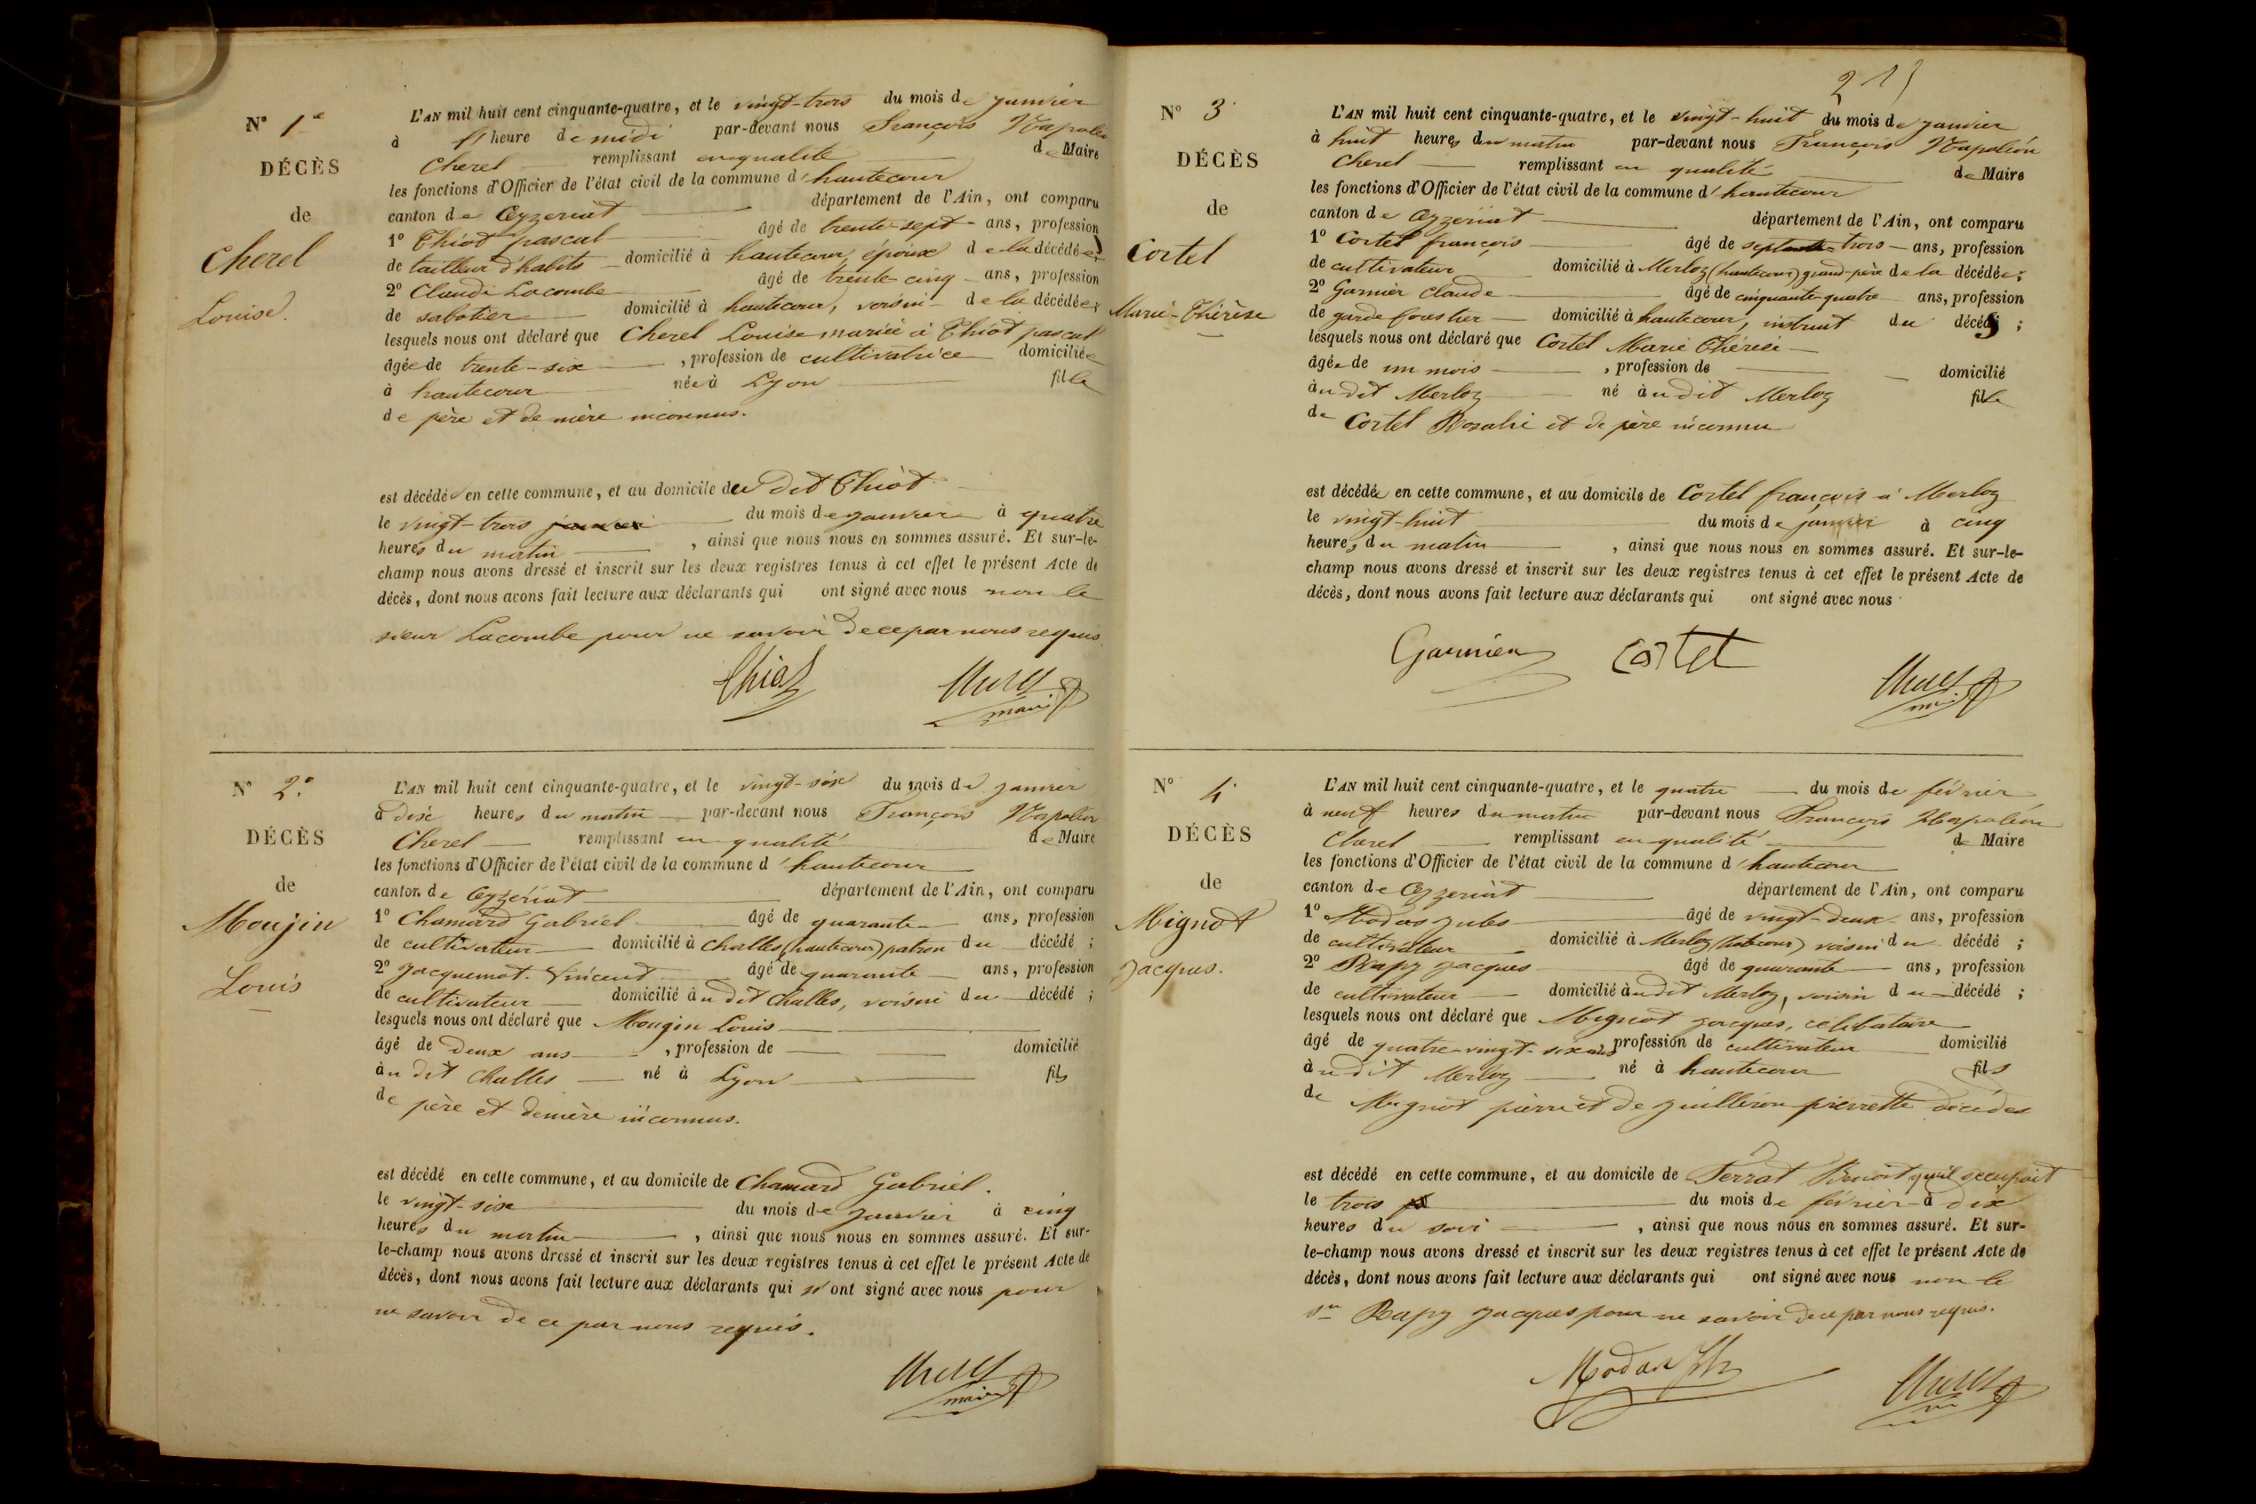 N° 1er
DÉCÈS
de
Cherel
Louise.
L'AN mil huit cent cinquante-quatre, et le vingt-trois du mois de janvier
à heure de midi par-devant nous François Napoléon
Cherel remplissant en qualité de Maire
les fonctions d'Officier de l'état civil de la commune d'hautecour
canton de Ceyzeriat département de l'Ain, ont comparu
1° Thiot pascal âgé de trente-sept ans, profession
de tailleur d'habits domicilié à hautecour, époux de la décédée;
2° Claude Lacombe âgé de trente cinq ans, profession
de sabotier domicilié à hautecour, voisin de la décédée;
lesquels nous ont déclaré que Cherel Louise mariée à Thiot pascal
âgée de trente-six , profession de cultivatrice domiciliée
à hautecour née à Lyon fille
de père et de mère inconnus.
est décédée en cette commune, et au domicile du dit Thiot
le vingt-trois du mois de janvier à quatre
heures du matin , ainsi que nous nous en sommes assuré. Et sur-le-
champ nous avons dressé et inscrit sur les deux registres tenus à cet effet le présent Acte de
décès, dont nous avons fait lecture aux déclarants qui ont signé avec nous non le
sieur Lacombe pour ne savoir de ce par nous requis
Thiot
Cherel
maire
N° 2e
DÉCÈS
de
Moujin
Louis
L'AN mil huit cent cinquante-quatre, et le vingt-six du mois de janvier
à dix heures du matin par-devant nous François Napoléon
Cherel remplissant en qualité de Maire
les fonctions d'Officier de l'état civil de la commune d'hautecour
canton de Ceyzériat département de l'Ain, ont comparu
1° Chamard Gabriel âgé de quarante ans, profession
de cultivateur domicilié à Challes (hautecour) patron du décédé ;
2° Jacquemot Vincent âgé de quarante ans, profession
de cultivateur domicilié àu dit Challes, voisin du décédé ;
lesquels nous ont déclaré que Mougin Louis
âgé de deux ans , profession de domicilié
àu dit Challes né à Lyon fils
de père et de mère inconnus.
est décédé en cette commune, et au domicile de Chamard Gabriel.
le vingt-six du mois de janvier à cinq
heures du matin , ainsi que nous nous en sommes assuré. Et sur-
le-champ nous avons dressé et inscrit sur les deux registres tenus à cet effet le présent Acte de
décès, dont nous avons fait lecture aux déclarants qui n'ont signé avec nous pour
ne savoir de ce par nous requis.
Cherel
maire
N° 3
DÉCÈS
de
Cortel
Marie-Thérèse
L'AN mil huit cent cinquante-quatre, et le vingt-huit du mois de janvier
à huit heures du matin par-devant nous François Napoléon
Cherel remplissant en qualité de Maire
les fonctions d'Officier de l'état civil de la commune d'hautecour
canton de Ceyzeriat département de l'Ain, ont comparu
1° Cortel françois âgé de septante-trois ans, profession
de cultivateur domicilié à Merloz (hautecour) grand-père de la décédée;
2° Garnier Claude âgé de cinquante-quatre ans, profession
de garde forestier domicilié à hautecour, instruit du décédé ;
lesquels nous ont déclaré que Cortel Marie Thérèse
âgée de un mois , profession de domicilié
àu dit Merloz né àu dit Merloz fille
de Cortel Rosalie et de père inconnu
est décédée en cette commune, et au domicile de Cortel françois à Merloz
le vingt-huit du mois de janvier à cinq
heures du matin , ainsi que nous nous en sommes assuré. Et sur-le-
champ nous avons dressé et inscrit sur les deux registres tenus à cet effet le présent Acte de
décès, dont nous avons fait lecture aux déclarants qui ont signé avec nous
Garnier Cortet
Cherel
N° 4
DÉCÈS
de
Mignot
Jacques.
L'AN mil huit cent cinquante-quatre, et le quatre du mois de février
à neuf heures du matin par-devant nous François Napoléon
Cherel remplissant en qualité de Maire
les fonctions d'Officier de l'état civil de la commune d'hautecour
canton de Ceyzeriat département de l'Ain, ont comparu
1° Jules âgé de vingt-deux ans, profession
de cultivateur domicilié à Merloz voisin du décédé ;
2° Jacques âgé de quarante ans, profession
de cultivateur domicilié àu dit Merloz, voisin du décédé ;
lesquels nous ont déclaré que Mignot jacques, célibataire
âgé de quatre-vingt-six ans profession de cultivateur domicilié
àu dit Merloz né à hautecour fils
de Mignot pierre et de pierrette décédés
est décédé en cette commune, et au domicile de Benoit qu'il occupait
le trois du mois de février à dix
heures du soir , ainsi que nous nous en sommes assuré. Et sur-
le-champ nous avons dressé et inscrit sur les deux registres tenus à cet effet le présent Acte de
décès, dont nous avons fait lecture aux déclarants qui ont signé avec nous non le
sr Jacques pour ne savoir de ce par nous requis.
Cherel